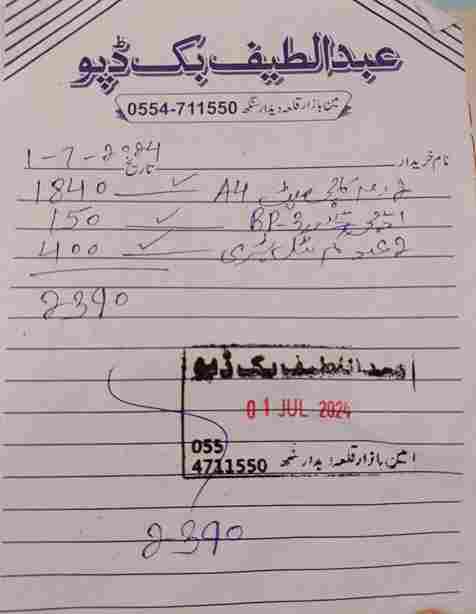 عبداللطیف بک ڈپو
مین بازار قلعہ دیدار سنگھ 0554-711550
نام خریدار
تاریخ 1-7-2024
2 رم کاپی پیپر A4 1840
BP-3 150
2 عدد 400
2390
عبداللطیف بک ڈپو
01 JUL 2024
055
مین بازار قلعہ دیدار سنگھ 4711550
2390